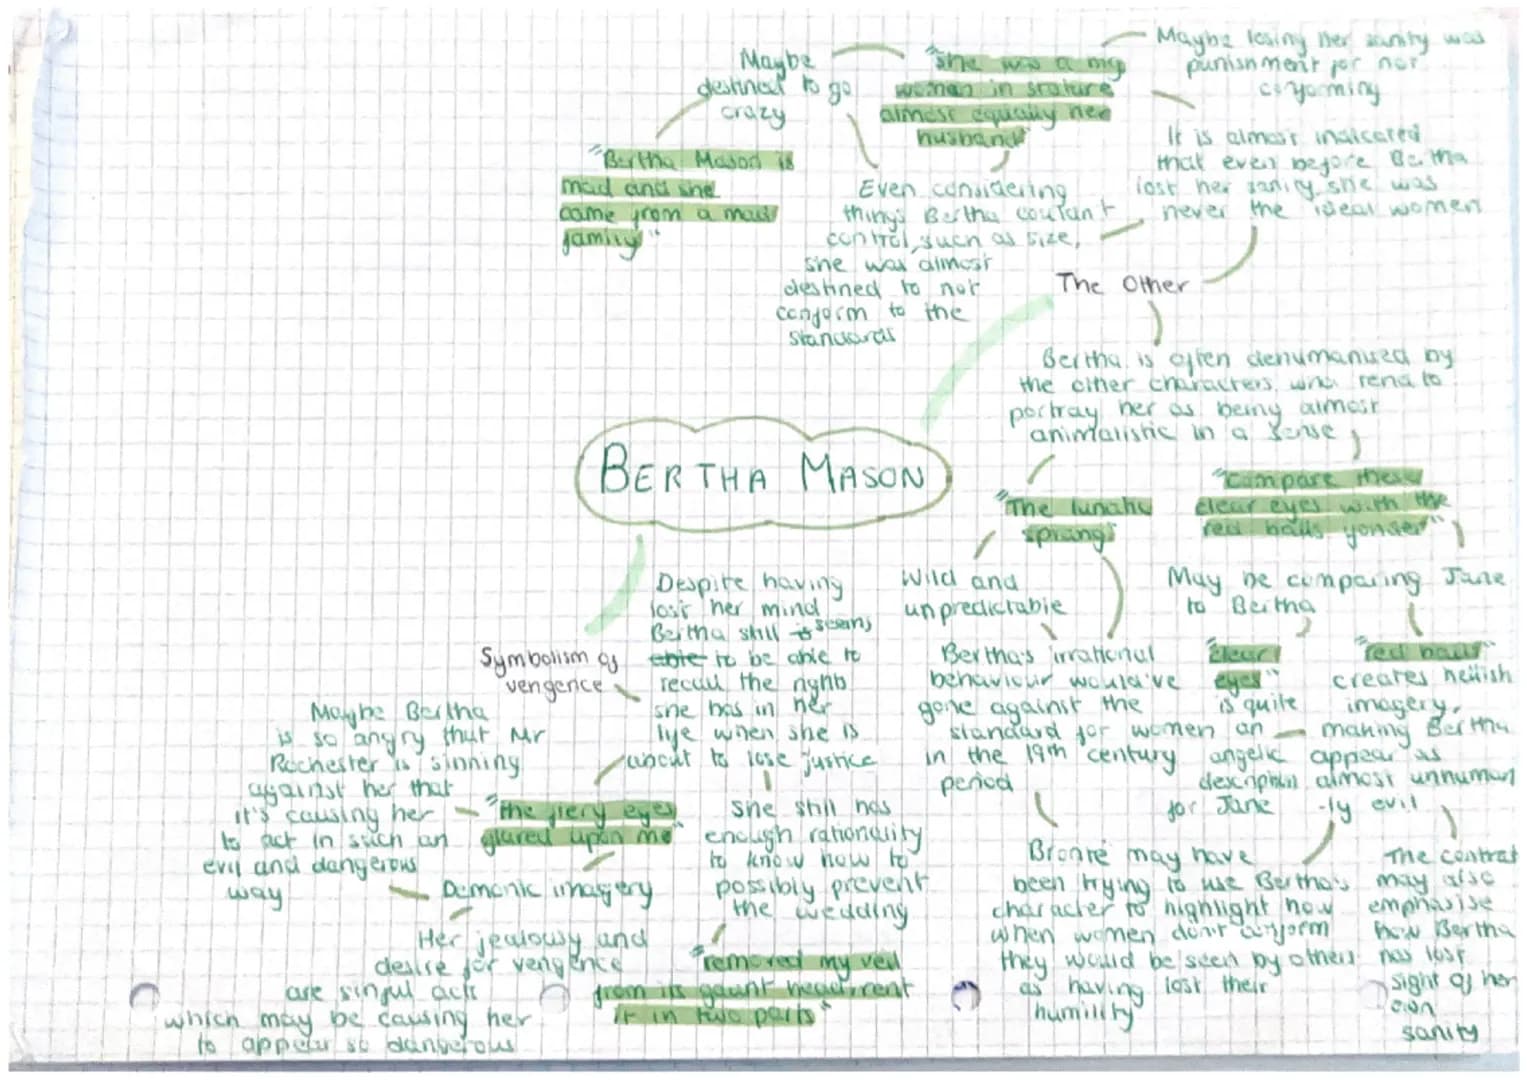 Maybe
destined to go
crazy
"She was a big
woman in stature
almost equally her
husband"
Maybe losing her sanity was
punishment for not
conforming
"Bertha Mason is
mad and she
came from a mad
family"
Even considering
things Bertha couldn't
control, such as size,
she was almost
destined to not
conform to the
standards
It is almost indicated
that even before Bertha
lost her sanity, she was
never the ideal women
The Other
Bertha is often dehumanized by
the other characters, who tend to
portray her as being almost
animalistic in a sense
BERTHA MASON
"The lunatic
sprang"
"Compare these
clear eyes with the
red balls yonder"
Wild and
unpredictable
Bertha's irrational
behaviour would've
gone against the
standard for women
in the 19th century
period
May be comparing Jane
to Bertha
"clear
eyes"
is quite
an
angelic
description
for Jane
"red balls"
creates hellish
imagery,
making Bertha
appear as
almost unhuman
-ly evil
Bronte may have
been trying to use Bertha's
character to highlight how
when women don't conform
they would be seen by others
as having lost their
humility
The contrast
may also
emphasise
how Bertha
has lost
sight of her
own
sanity
Symbolism of
vengence
Despite having
lost her mind
Bertha still is seems
able to be able to
recall the rights
she has in her
life when she is
about to lose justice
She still has
enough rationality
to know how to
possibly prevent
the wedding
"removed my veil
from its gaunt head, rent
it in two parts"
"the fiery eyes
glared upon me"
Demonic imagery
Maybe Bertha
is so angry that Mr
Rochester is sinning
against her that
it's causing her
to act in such an
evil and dangerous
way
Her jealousy and
desire for vengence
are sinful acts
which may be causing her
to appear so dangerous